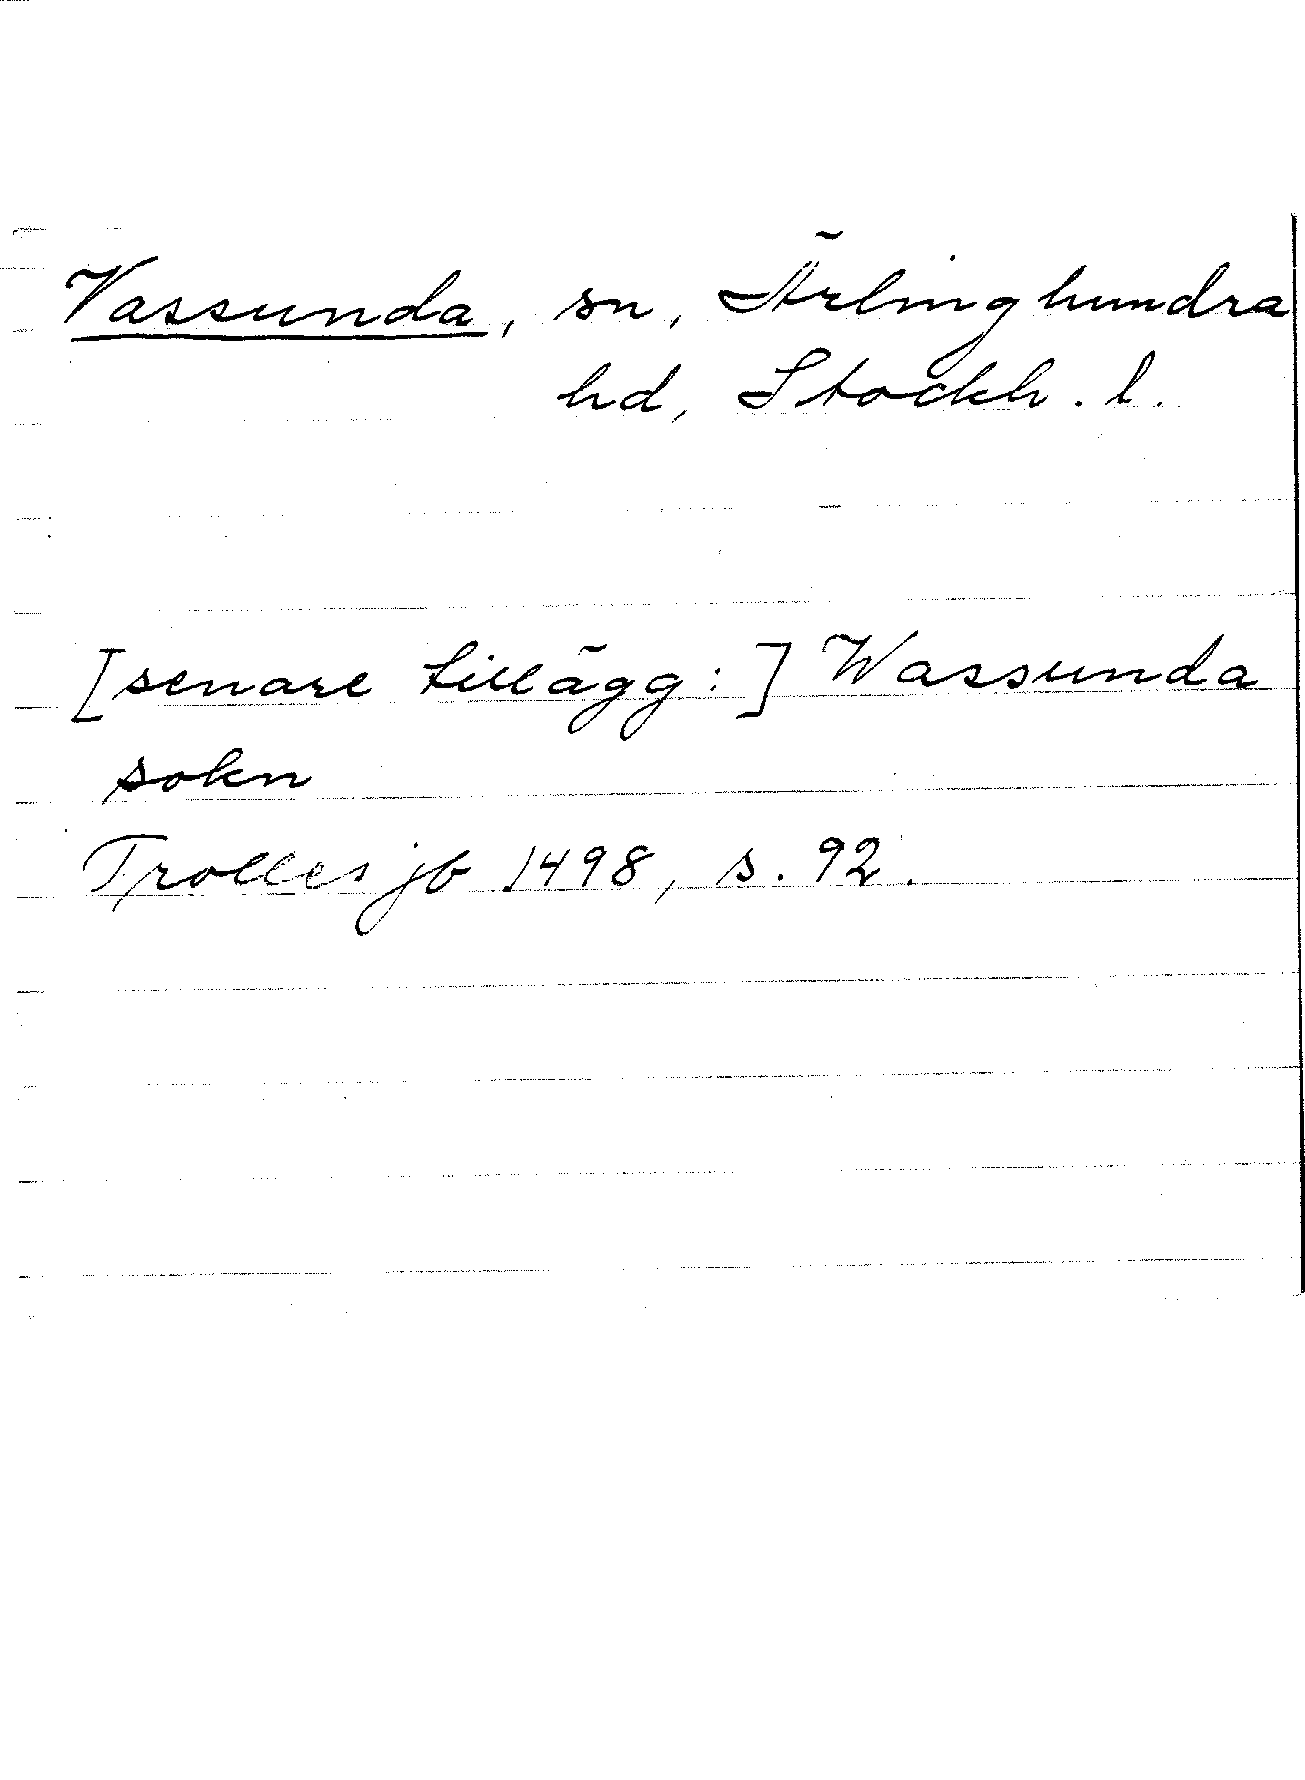 Vassunda, sn, Ärlinghundra
hd, Stockh. l.
[senare tillägg:] Wassunda
sokn
Trolles jb 1498, s. 92.